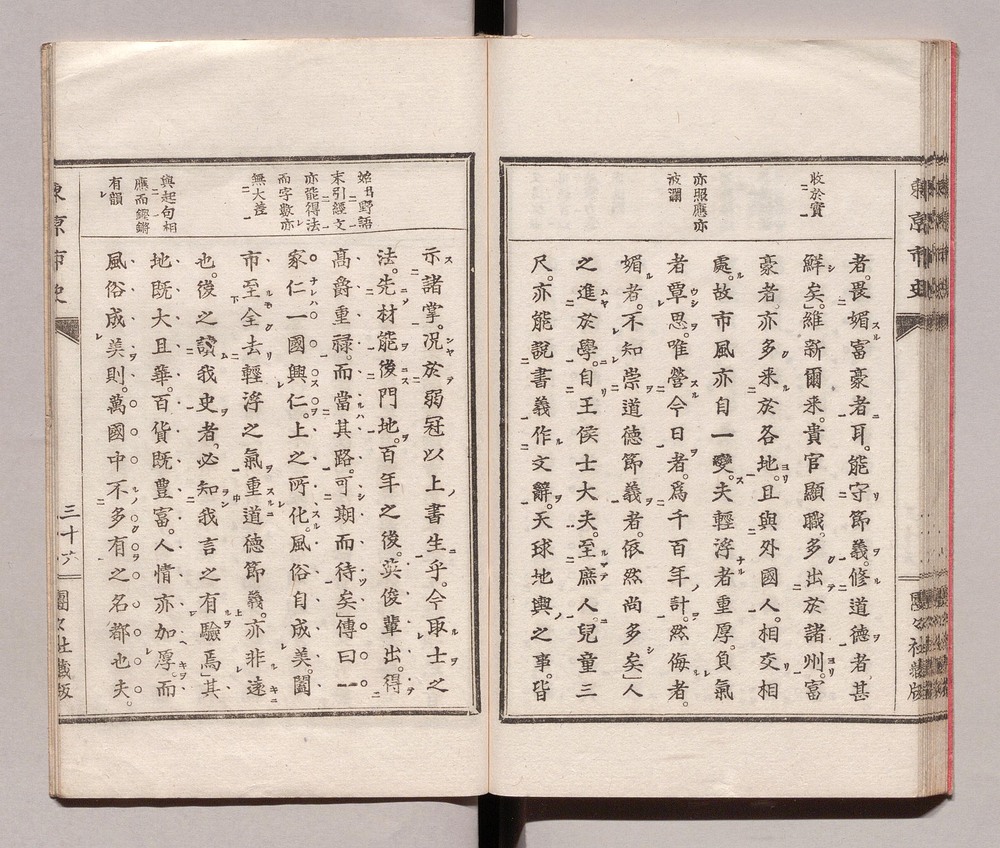 收於實
亦照應亦
波瀾
者。畏媚富豪者耳。能守節義。修道德者。甚
鮮矣。」維新爾来。貴官顯職。多出於諸州。富
豪者。亦多来於各地。且與外國人。相交相
處。故市風亦自一變。夫輕浮者重厚。負氣
者覃思。唯營今日者。爲千百年計。然侮者。
媚者。不知崇道德節義者。依然尚多矣」人
之進於學。自王侯士大夫。至庶人。兒童三
尺。亦能說書義作文辭。天球地輿之事。皆
始引野語
末引經文
亦能得法
而字數亦
無大差
興起句相
應而鏗鏘
有韻
示諸掌。况於弱冠以上書生乎。今取士之
法。先材能後門地。百年之後。英俊輩出。得
髙爵重祿。而當其路。可期而待矣」傳曰一
家仁一國興仁。上之所化。風俗自成美。闔
市至全去輕浮之氣重道德節義。亦非遠
也。後之讀我史者。必知我言之有驗焉」其
地既大且華。百貨既豊富。人情亦加厚。而
風俗成美。則。萬國中不多有之名都也夫。
東京市史
三十六
團々社藏版